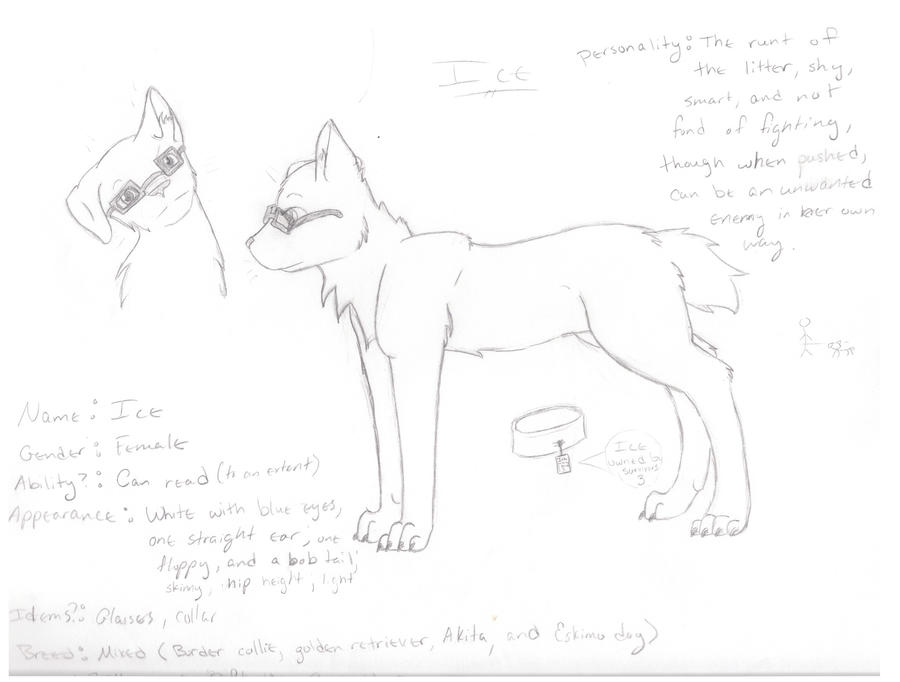 Ice
Personality: The runt of
the litter, shy,
smart, and not
fond of fighting,
though when pushed,
can be an unwanted
enemy in her own
way.
Name: Ice
Gender: Female
Ability?: Can read (to an extent)
Appearance: White with blue eyes,
one straight ear, one
floppy, and a bob tail,
skinny, hip height, light
Idems?: Glasses, collar
Breed: Mixed (Burder collie, golden retriever, Akita, and Eskimo dog)
Ice
owned by
3